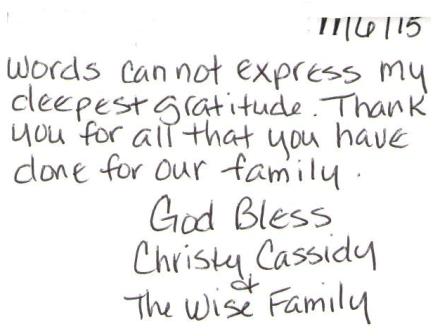 11/6/15
words can not express my
deepest gratitude. Thank
you for all that you have
done for our family.
God Bless
Christy Cassidy
&
The Wise Family